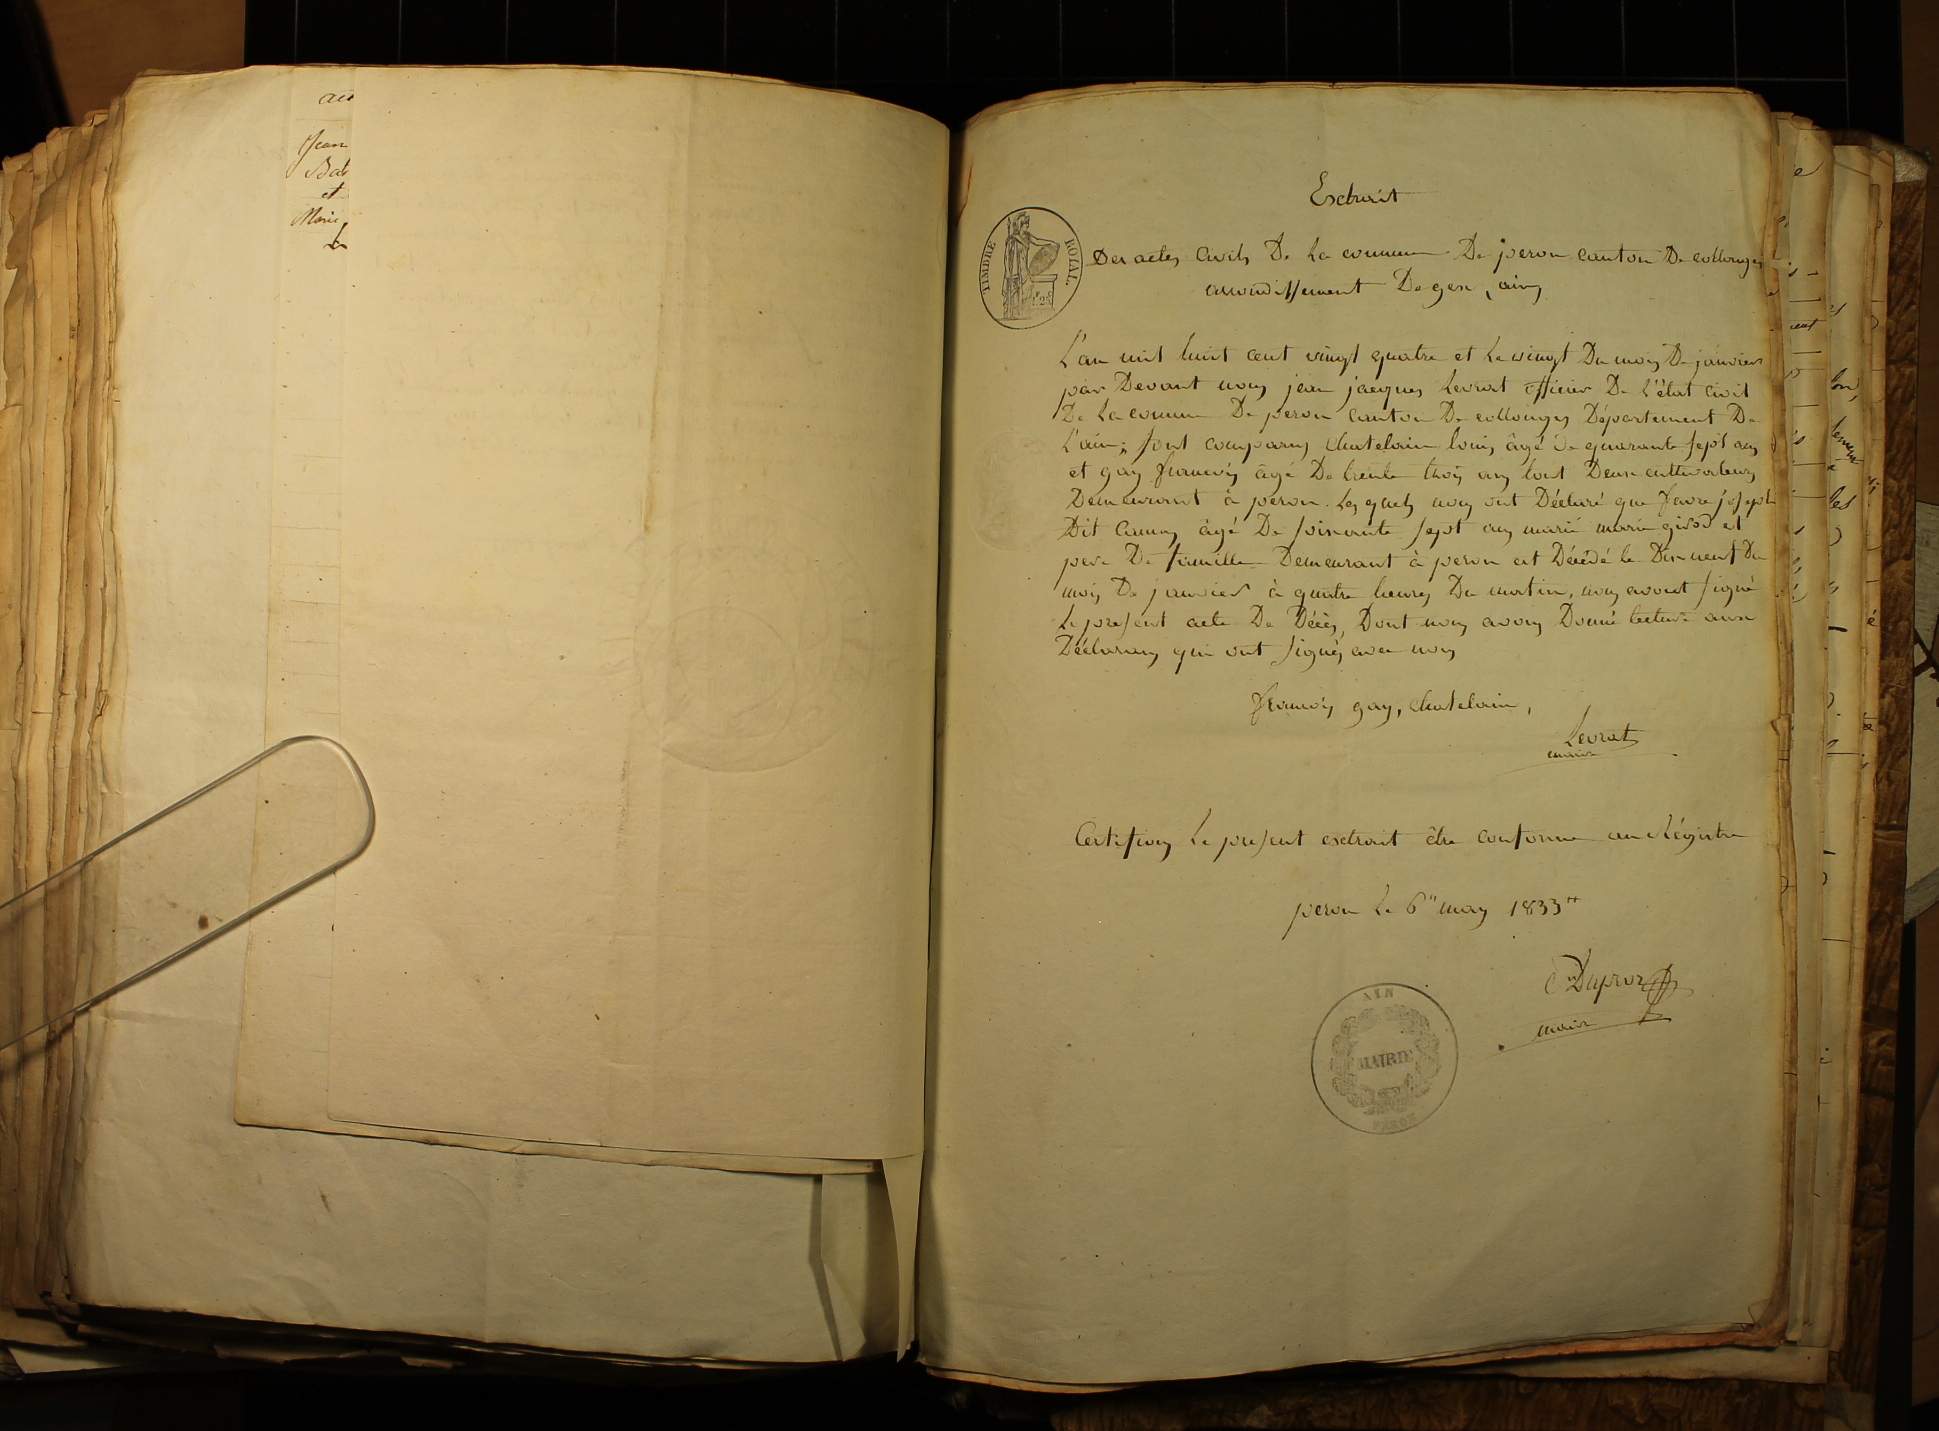 au
Jean
Bat
et
Marie
Esctrait
TIMBRE ROYAL
Des actes Civils De La commune De peron canton De collonges
arrondissement De gex, ain
L'an mil huit cent vingt quatre et Le vingt Du mois De janvier
par Devant nous jean jacques Levrat officier De L'état civil
De La commune De peron canton De collonges Département De
L'ain; sont comparus Chatelain louis âgé De quarante sept ans
et gay francois âgé De trente trois ans tout Deux cultivateurs
Demeurant à peron. Lesquels nous ont Déclaré que favre joseph
Dit âgé De soixante sept ans marié marie girod et
pere De famille Demeurant à peron est Décédé le Dix neuf Du
mois De janvier à quatre heures Du matin, nous avons signé
Le present acte De Décès, Dont nous avons Donné lecture aux
Déclarans qui ont signés avec nous
francois gay, chatelain,
Levrat
maire
Certifions Le present esctrait être conforme au Régistre
peron Le 6" may 1833"
Duproz
maire
AIN
MAIRIE
PERON